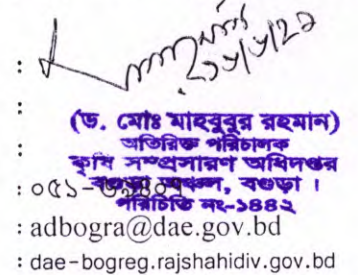 (ড. মোঃ মাহবুবুর রহমান)
অতিরিক্ত পরিচালক
কৃষি সম্প্রসারণ অধিদপ্তর
বগুড়া অঞ্চল, বগুড়া ।
: ০৫১-
পরিচিতি নং-১৪৪২
: adbogra@dae.gov.bd
: dae-bogreg.rajshahidiv.gov.bd